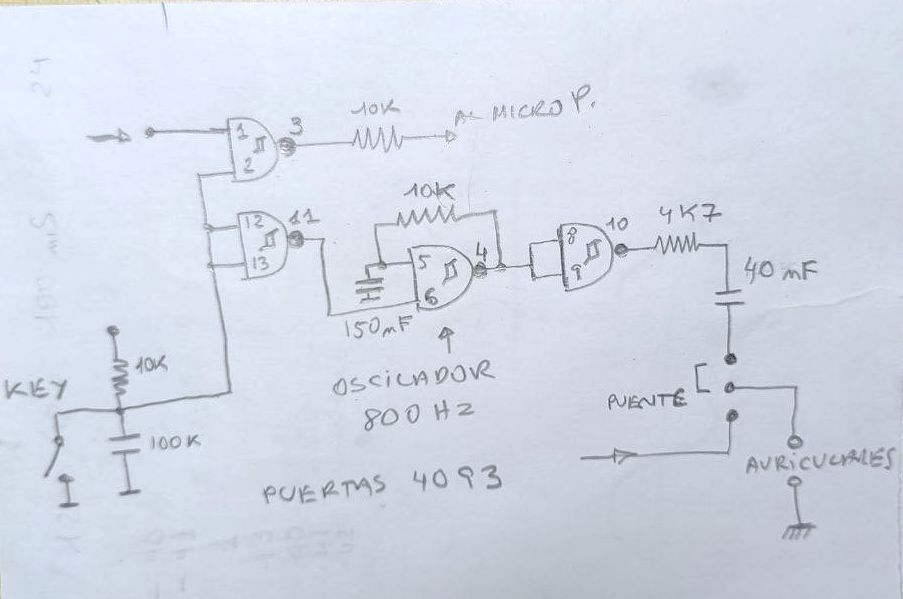 10K
AL MICRO P.
1
3
2
10K
12
11
13
10
8
9
4K7
5
4
6
40 mF
150mF
10K
KEY
OSCILADOR
800 HZ
PUENTE
100K
AURICULARES
PUERTAS 4093